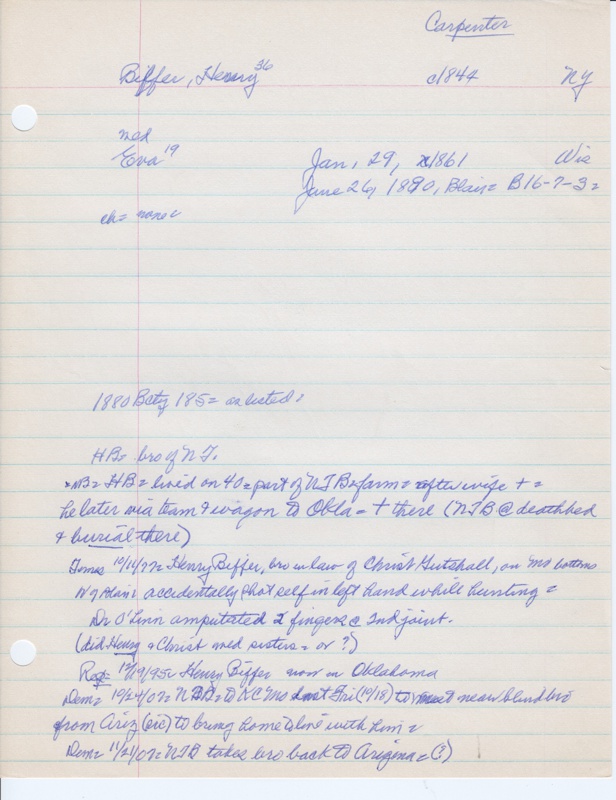 Carpenter
Biffer, Henry 36 c1844 NY
med
Eva 19 Jan, 29, 1861 Wis
June 26, 1890, Blair= B16-7-3=
ch= none=
1880 Bcty 185= as listed=
HB= bro of NT.
NB= HB= lived on 40= part of NTB farm= after wife + =
he later via team & wagon to Okla= + there (NTB @ deathbed
& burial there)
Henry Biffer, bro in law of Christ Gutshall, on Mo bottoms
accidentally shot self in left hand while hunting=
Dr O'Linn amputated 2 fingers @ 2nd joint.
(did Henry & Christ med sisters= or ?)
Henry Biffer now in Oklahoma
Dem= 10/24/02= to KC Mo last Fri (10/18) to meet near blind bro
from Ariz (sic) to bring home to live with him=
Dem= 11/21/02= NTB takes bro back to Arizona= (?)